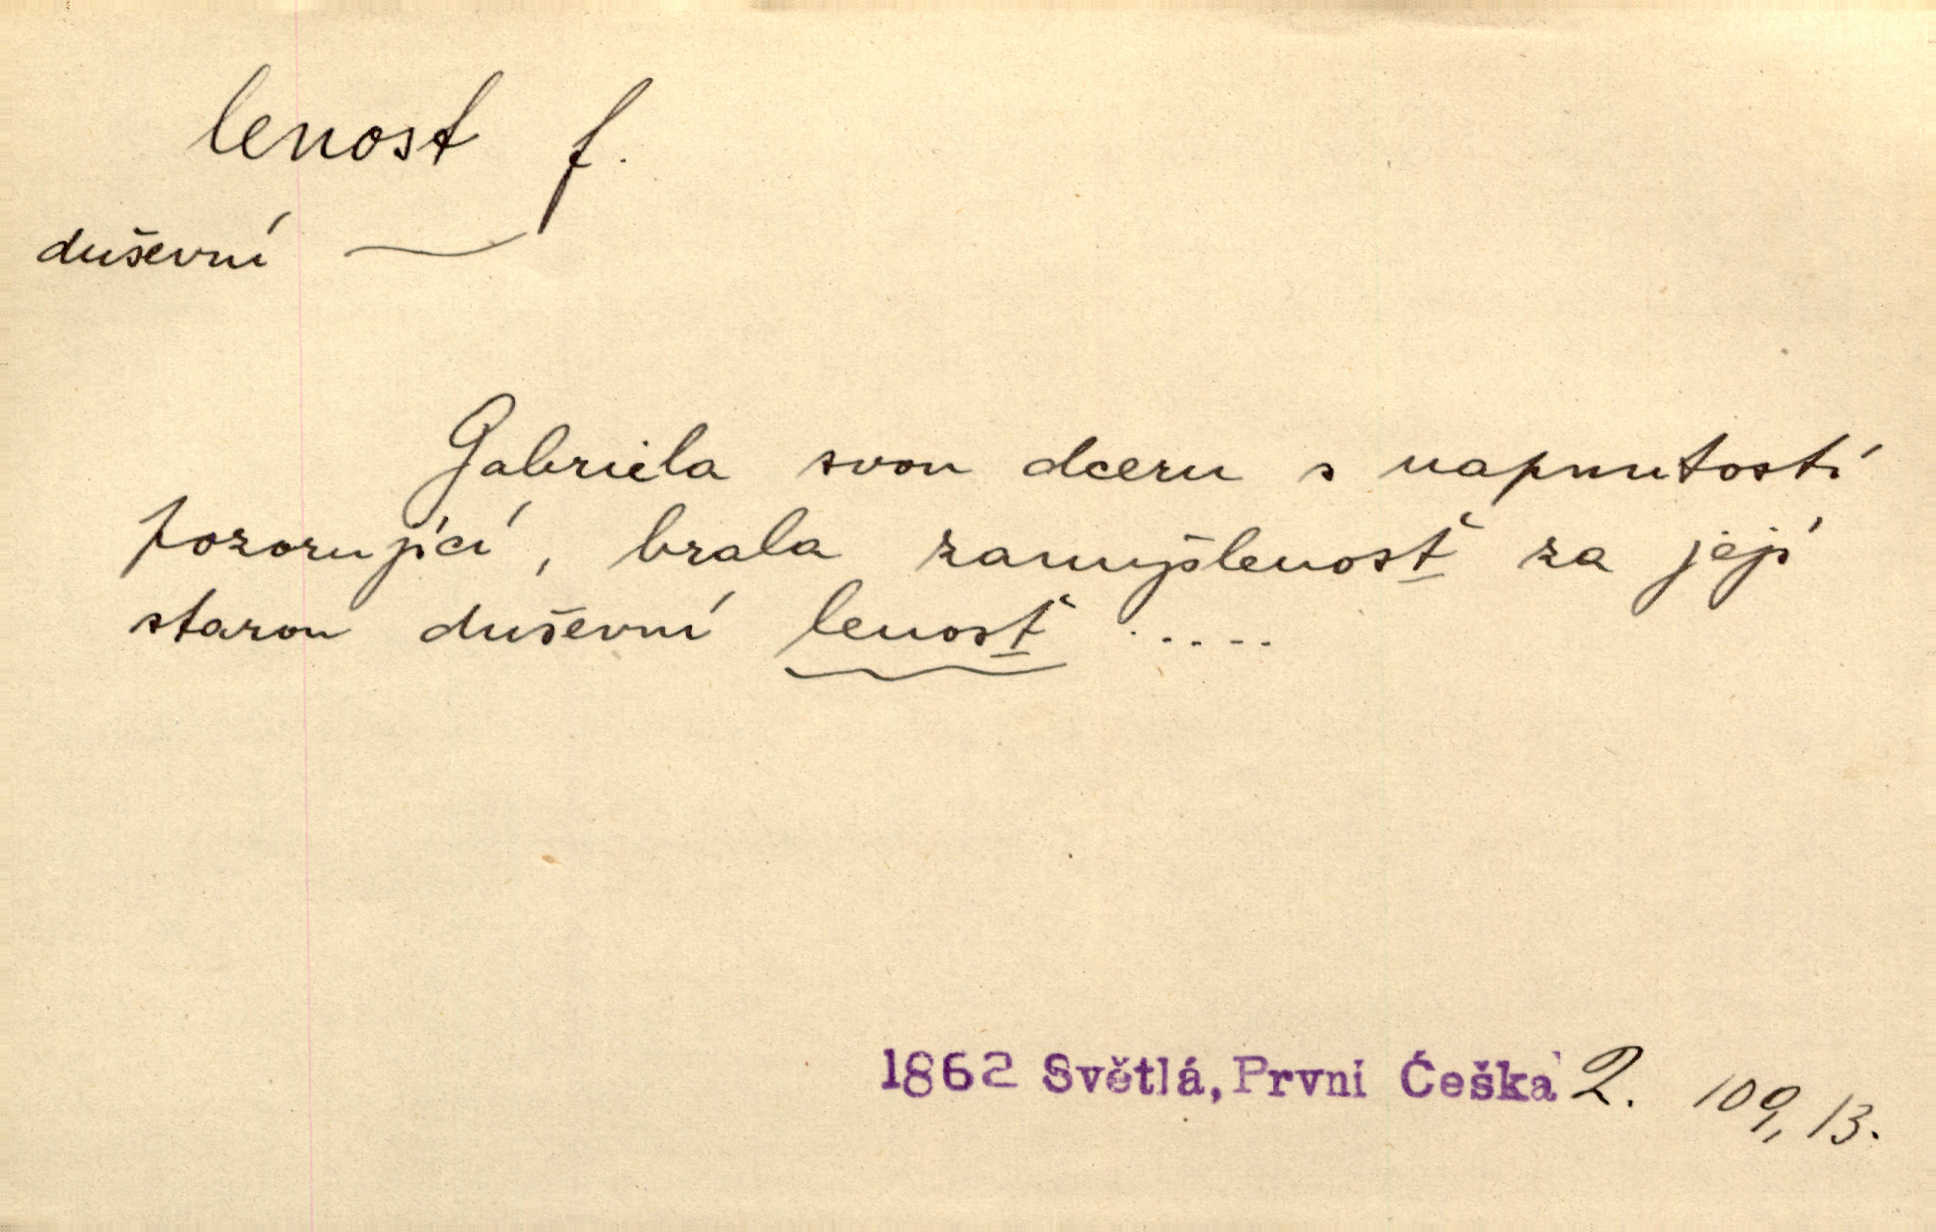 lenost f.
duševní ~
Gabriela svou dceru s napnutostí
pozorující, brala zamyšlenosť za její
starou duševní lenosť .....
1862 Světlá, První Češka 2. 109, 13.